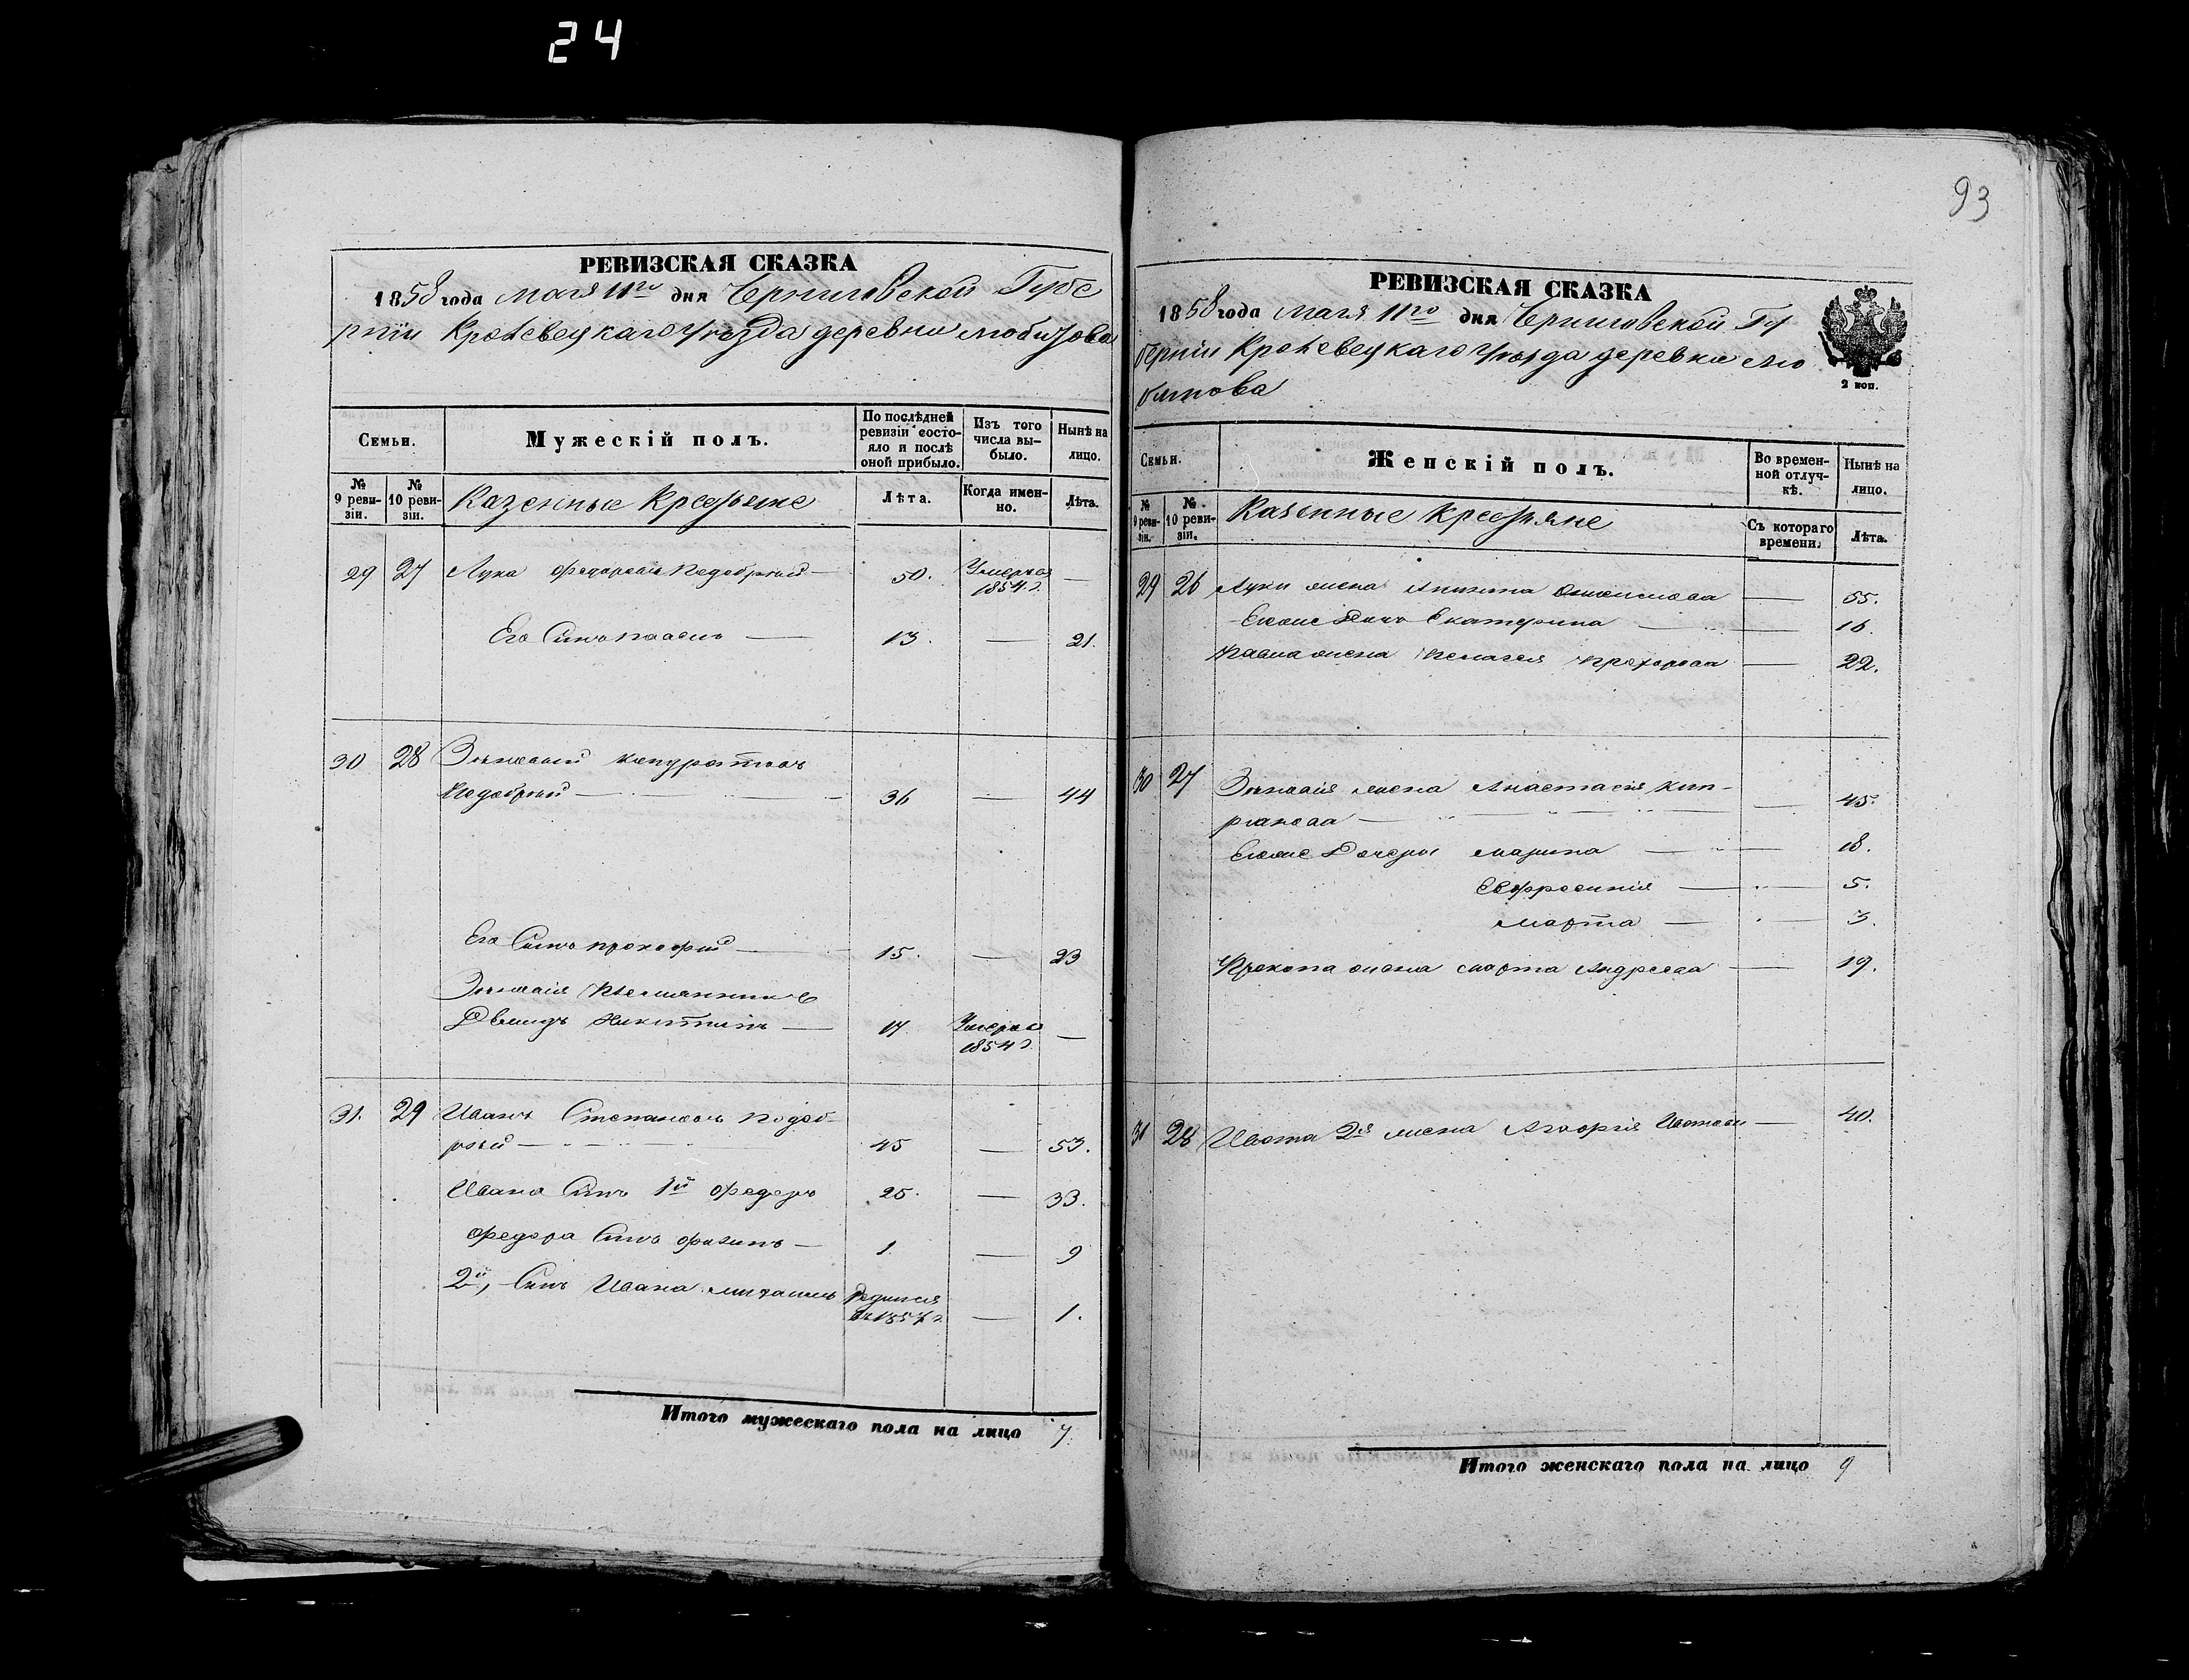 24
РЕВИЗСКАЯ СКАЗКА
1858 года Мая 11го дня Черниговской Губе
рніи Кролевецкаго Уѣзда деревни Любитова
Семьи.
Мужескій полъ.
По послѣдней ревизіи состояло и послѣ оной прибыло.
Изъ того числа выбыло.
Нынѣ на лицо.
№ 9 ревизіи.
№ 10 ревизіи.
Казенные Крестьяне
Лѣта.
Когда именно.
Лѣта.
29 27 Лука Федоровъ Подобрный — 50. Умеръ въ 1854 г. —
Его Сынъ Павелъ — 13. — 21.
30 28 Зѣновій Кондратовъ
Подобрный — 36 — 44
Его Сынъ Прокофій — 15. — 23
Зѣновія Племянникъ
Давидъ Никитинъ — 17. Умеръ въ 1854 г. —
31. 29 Иванъ Степановъ Подоб-
рный — 45 — 53.
Ивана Сынъ 1й Федоръ 25. — 33.
Федора Сынъ — 1. — 9
2й, Сынъ Ивана Михаилъ Родился въ 1857 г. — 1.
Итого мужескаго пола на лицо 7
93
РЕВИЗСКАЯ СКАЗКА
1858 года Мая 11го дня Черниговской Гу
берніи Кролевецкаго Уѣзда деревни Лю
битова
2 коп.
Семьи.
Женскій полъ.
Во временной отлучкѣ.
Нынѣ на лицо.
№ 9 ревизіи.
№ 10 ревизіи.
Казенные Крестьяне
Съ котораго времени.
Лѣта.
29 26 Луки жена — 55.
Екатерина — 16.
Павла жена Пелагея Прохорова — 22.
30 27 Зѣновія жена Анастасія Кип-
рianова — 45.
Дочери Марина — 18.
Евфросинія — 5.
Марфа — 3.
Прокопа жена Марфа Андреева — 19.
31 28 Ивана 2я жена Агафія — 40.
Итого женскаго пола на лицо 9